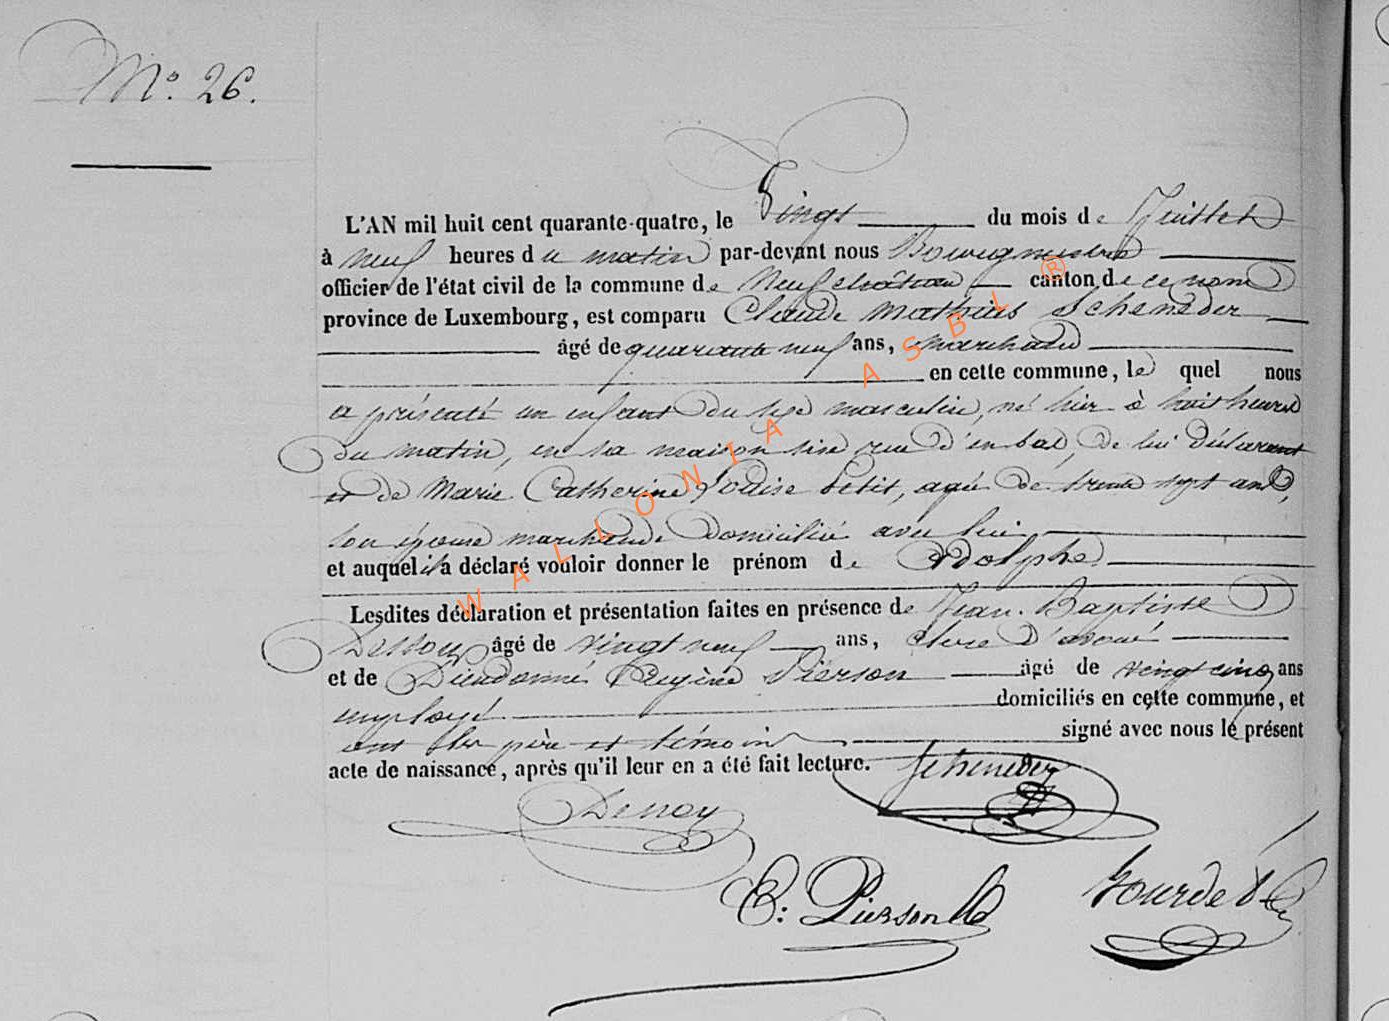 N° 26.
L'AN mil huit cent quarante-quatre, le Vingt du mois de Juillet
à neuf heures du matin par-devant nous Bourgmestre
officier de l'état civil de la commune de Neufchâteau canton de ce nom
province de Luxembourg, est comparu Claude Mathias Scheneder
âgé de quarante neuf ans, marchand
en cette commune, le quel nous
a présenté un enfant du sexe masculin, né hier à huit heures
du matin, en sa maison sise rue d'en bas, de lui déclarant
et de Marie Catherine Louise Petit, agée de trente sept ans,
son épouse marchande domiciliée avec lui
et auquel il a déclaré vouloir donner le prénom de Adolphe
Lesdites déclaration et présentation faites en présence de Jean-Baptiste
âgé de vingt neuf ans, clerc d'avoué
et de Dieudonné Eugène Pierson âgé de vingt cinq ans
employé domiciliés en cette commune, et
ont les père et témoins signé avec nous le présent
acte de naissance, après qu'il leur en a été fait lecture. Scheneder
E: Pierson
WALLONIA ASBL ®